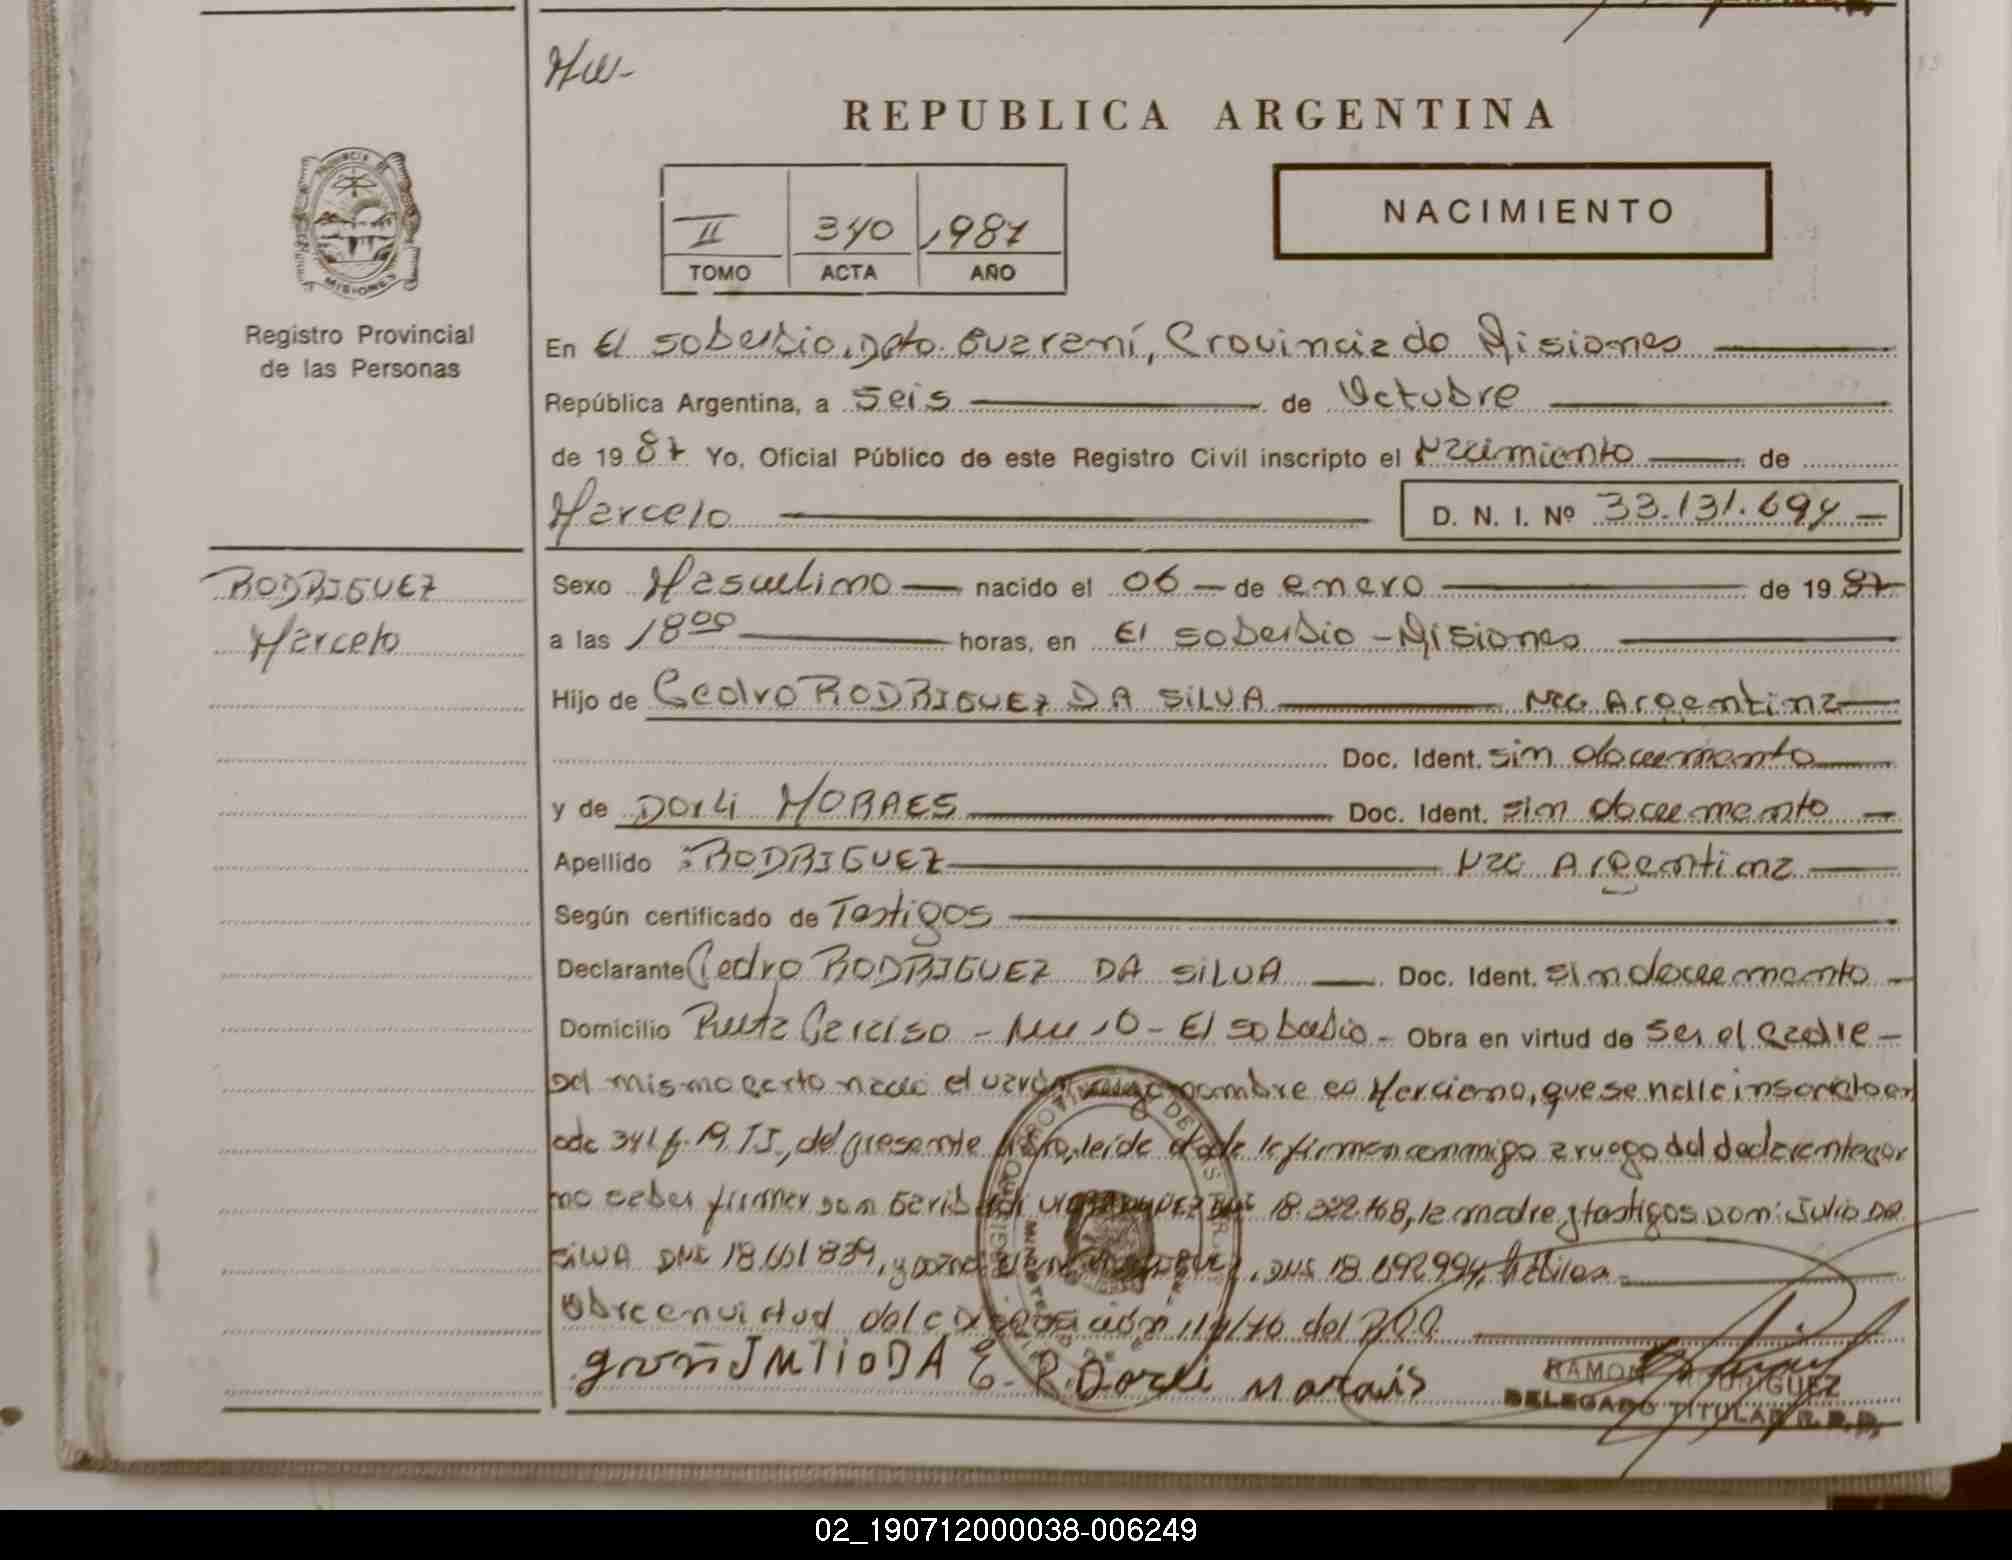 REPUBLICA ARGENTINA
NACIMIENTO
II 340 1987
TOMO ACTA AÑO
PROVINCIA DE MISIONES
Registro Provincial
de las Personas
En El Soberbio, Dpto. Guaraní, Provincia de Misiones
República Argentina, a Seis de Octubre
de 1987 Yo, Oficial Público de este Registro Civil inscripto el Nacimiento de
Marcelo D. N. I. Nº 33.131.694
RODRIGUEZ
Marcelo
Sexo Masculino nacido el 06 de enero de 1987
a las 18⁰⁰ horas, en El Soberbio - Misiones
Hijo de Pedro RODRIGUEZ DA SILVA Nac Argentina
Doc. Ident. sin documento
y de Dorli MORAES Doc. Ident. sin documento
Apellido : RODRIGUEZ Nac Argentina
Según certificado de Testigos
Declarante Pedro RODRIGUEZ DA SILVA Doc. Ident. sin documento
Domicilio Ruta Paraiso - 10 - El Soberbio - Obra en virtud de Ser el Padre
del mismo parto nació el varón cuyo nombre es Marciano, que se halla inscripto en
341 f. 19. T II, del presente libro, leída el acta la firman conmigo a ruego del declarante por
no saber firmar Don 18.322.168, la madre y testigos Don: Julio DA
SILVA DNI 18.601839, y DNI 18.692.994,
Obra en virtud del del
JULIO DA Dorli Morais
RAMON RODRIGUEZ
DELEGADO TITULAR R.P.P.
02_190712000038-006249